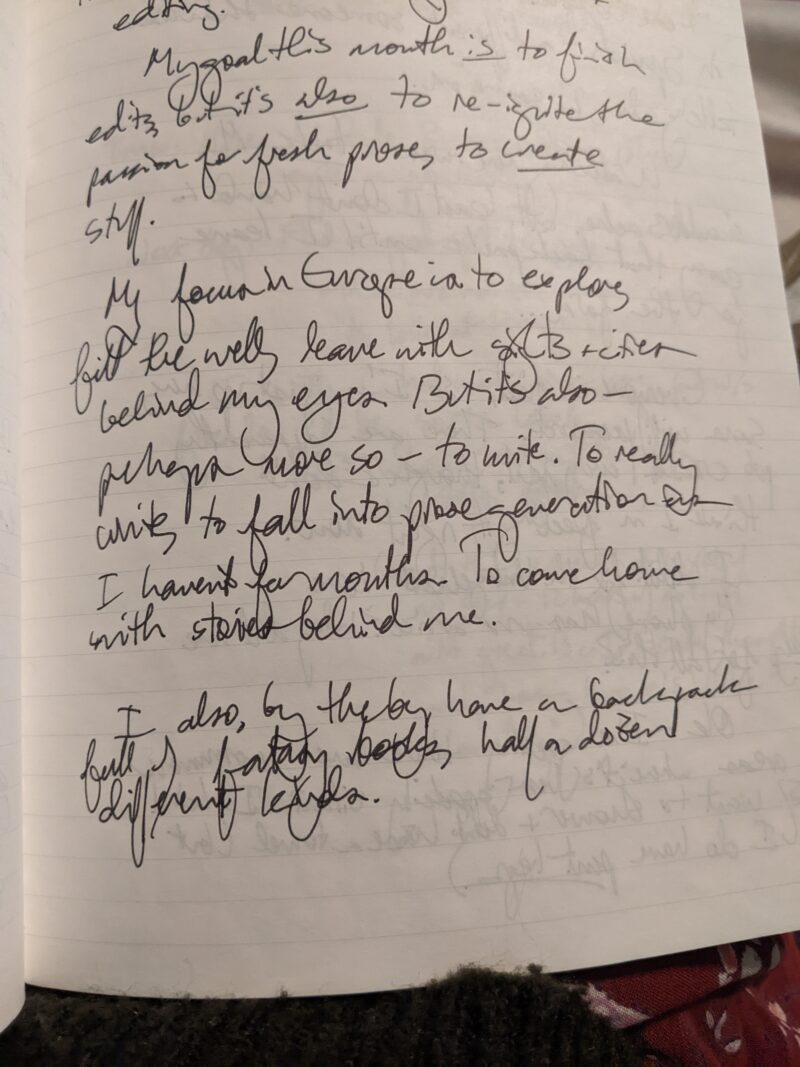 editing.
My goal this month is to finish
edits, but it's also to re-ignite the
passion for fresh prose, to create
stuff.
My focus in Europe is to explore,
fill the well, leave with sights + cities
behind my eyes. But it's also –
perhaps more so – to write. To really
write, to fall into prose generation as
I haven't for months. To come home
with stories behind me.
I also, by the by, have a backpack
full of fantasy books, half a dozen
different kinds.